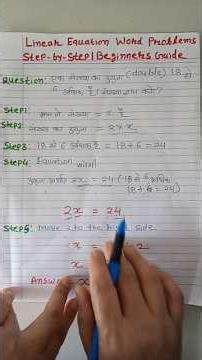 Linear Equation Word Problems
Step-by-Step | Beginners Guide
Question: एक संख्या का दुगुना (double) 18 से
6 अधिक है। संख्या ज्ञात करो?
Step1: माना संख्या = x है
Step2: संख्या का दुगुना = 2 x x
Step3: 18 से 6 अधिक है = 18 + 6 = 24
Step4: Equation बनेगी
2x = 24 (18 से 6 अधिक
18 + 6 = 24)
2x = 24
Step5: Move 2 to the right side
x = 2
x
Answer = x